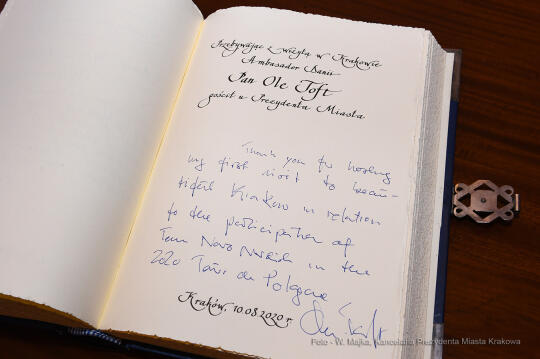 Przebywając z wizytą w Krakowie
Ambasador Danii
Pan Ole Toft
gościł u Prezydenta Miasta
Thank you for hosting
my first visit to beau-
tiful Krakow in relation
to the participation of
Team Novo Nordisk in the
2020 Tour de Pologne
Kraków, 10.08.2020 r.
Ole Toft
Foto - W. Majka, Kancelaria Prezydenta Miasta Krakowa